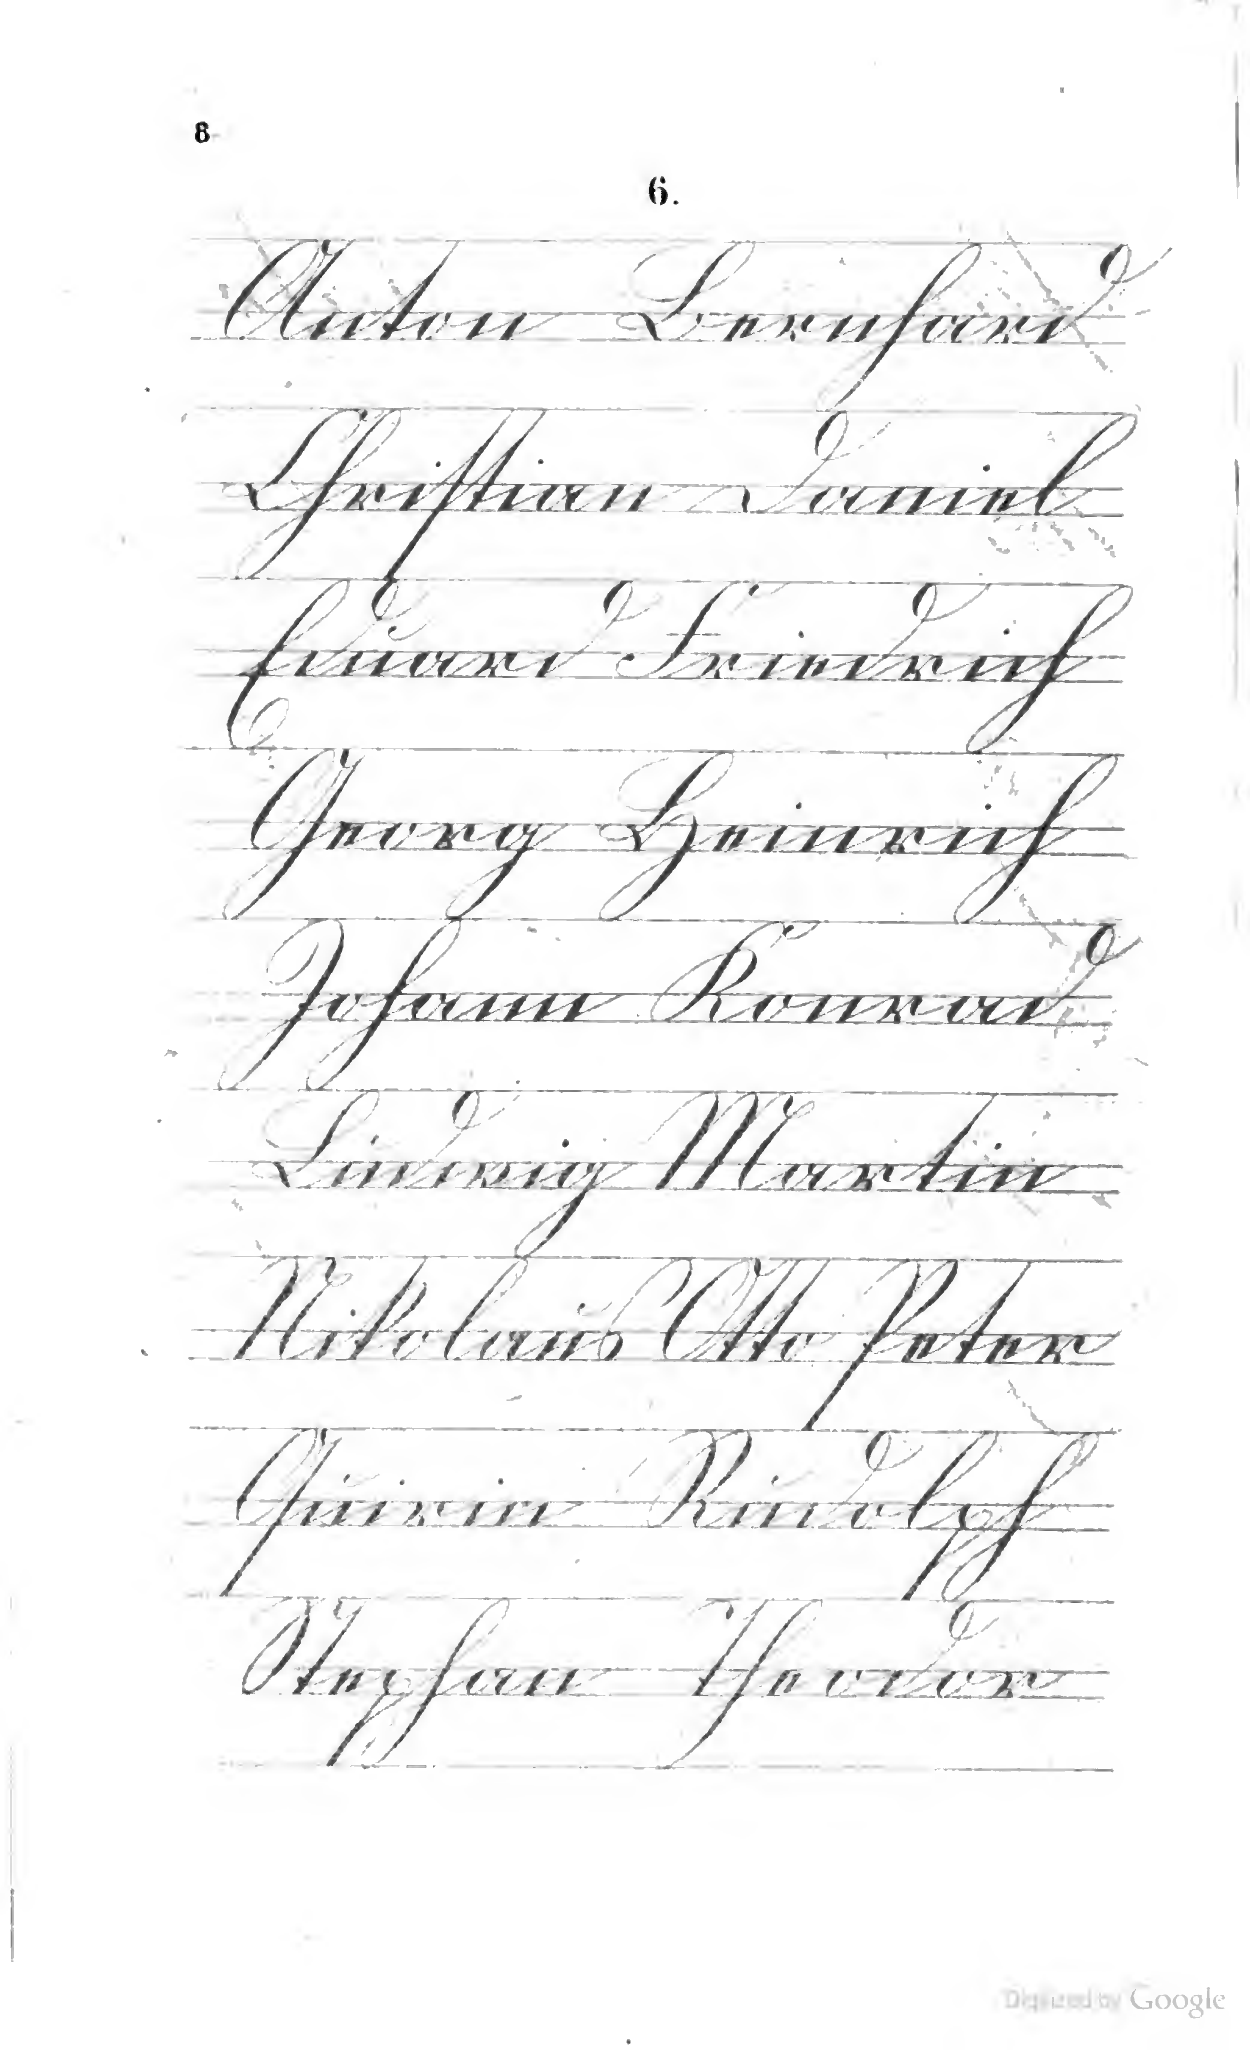 8
6.
Anton Bernhard
Christian Daniel
Eduard Friedrich
Georg Heinrich
Johann Konrad
Ludwig Martin
Nikolaus Otto Peter
Quirin Rudolph
Stephan Theodor
Digitized by Google